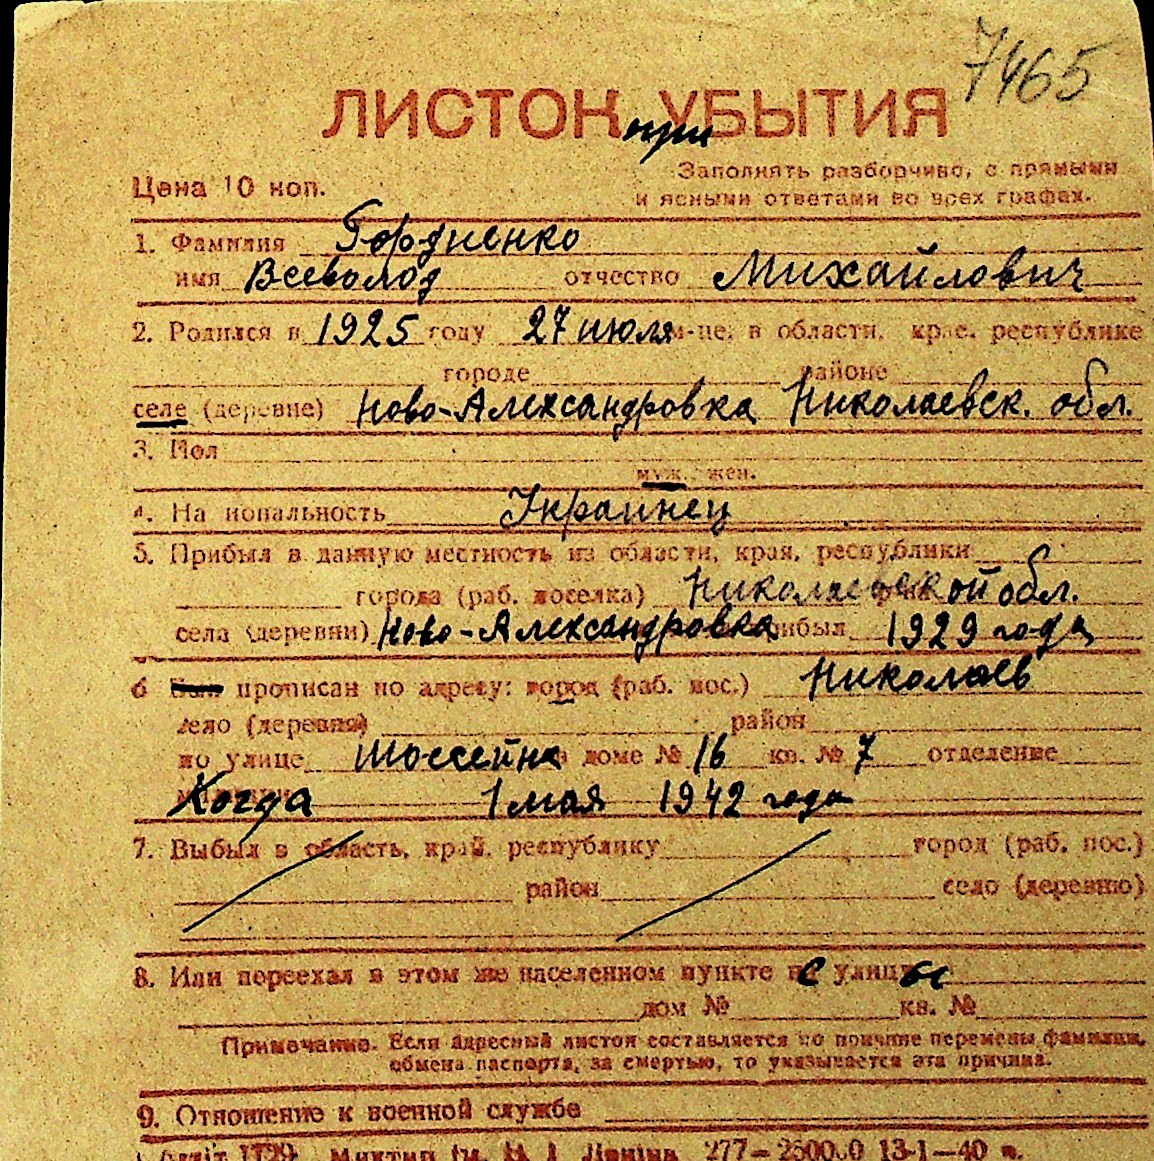 7465
ЛИСТОК УБЫТИЯ
при
Цена 10 коп.
Заполнять разборчиво, с прямыми
и ясными ответами во всех графах.
1. Фамилия Гордиенко
имя Всеволод отчество Михайлович
2. Родился в 1925 году 27 июля м-це, в области, крае, республике
городе районе
селе (деревне) Ново-Александровка Николаевск. обл.
3. Пол
муж. жен.
4. Национальность Украинец
5. Прибыл в данную местность из области, края, республики
города (раб. поселка) Николаевской обл.
села (деревни) Ново-Александровка прибыл 1929 года
6 прописан по адресу: город (раб. пос.) Николаев
село (деревня) район
по улице Шоссейна в доме № 16 кв. № 7 отделение
Когда 1 мая 1942 года
7. Выбыл в область, край, республику город (раб. пос.)
район село (деревню)
8. Или переехал в этом же населенном пункте с улицы
дом № кв. №
Примечание. Если адресный листок составляется по причине перемены фамилии,
обмена паспорта, за смертью, то указывается эта причина.
9. Отношение к военной службе
1729 Миктип ім. Леніна 277— 13-1—40